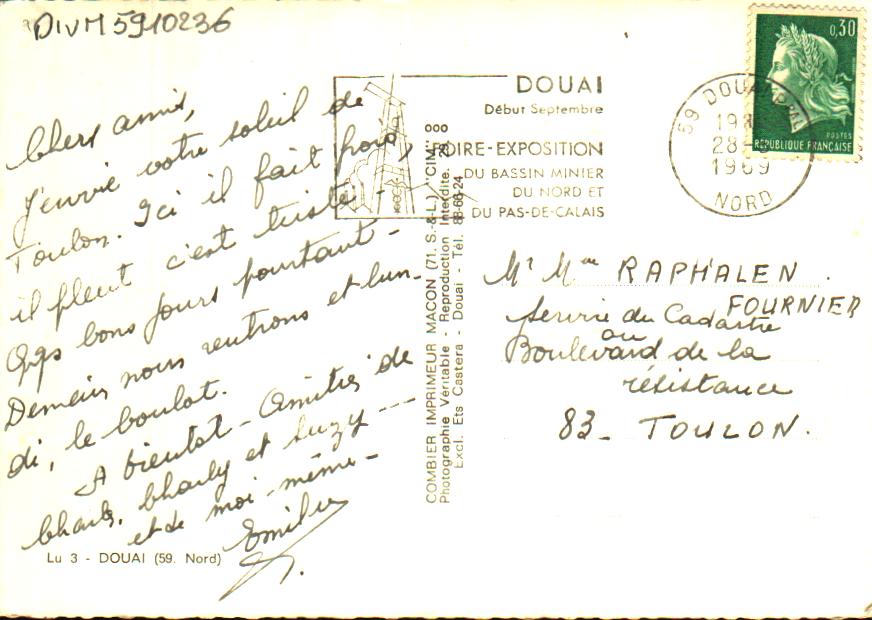 DIVM5910236
Chers amis,
J'envie votre soleil de
Toulon. Ici il fait froid,
il pleut c'est triste -
Qqs bons jours pourtant -
Demain nous rentrons et lun-
di, le boulot.
A bientot - Amitiés de
Charly et Suzy ---
et de moi-même -
Emilie
Lu 3 - DOUAI (59. Nord)
COMBIER IMPRIMEUR MACON (71. S.-&-L.) "CIM"
Photographie Véritable - Reproduction Interdite.
Excl. Ets Castera - Douai - Tél. 88-66-24
DOUAI
Début Septembre
FOIRE-EXPOSITION
DU BASSIN MINIER
DU NORD ET
DU PAS-DE-CALAIS
59 DOUAI
28-
1969
NORD
0,30
POSTES
REPUBLIQUE FRANÇAISE
Mr Mme RAPHALEN
FOURNIER
Service du Cadastre
ou
Boulevard de la
résistance
83 - TOULON.